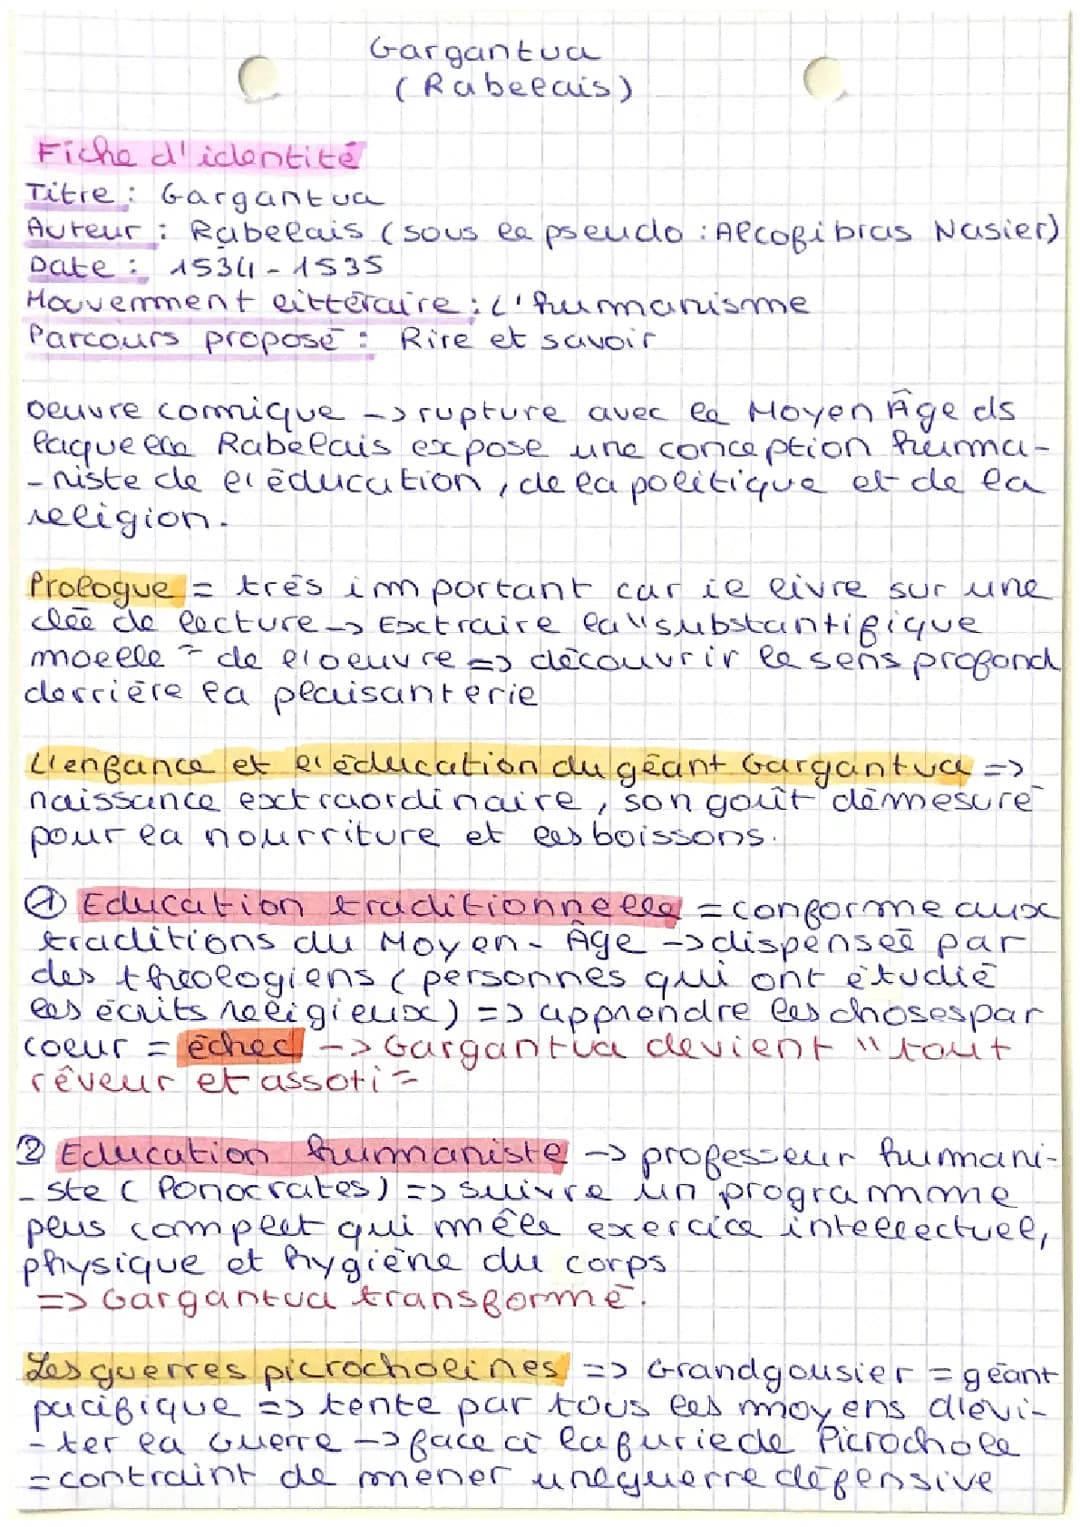 Gargantua
(Rabelais)
Fiche d'identité
Titre : Gargantua
Auteur : Rabelais (sous le pseudo : Alcofibras Nasier)
Date : 1534 - 1535
Mouvemment littéraire : L'humanisme
Parcours proposé : Rire et savoir
Oeuvre comique -> rupture avec le Moyen Âge ds
laquelle Rabelais expose une conception huma-
-niste de l'éducation, de la politique et de la
religion.
Prologue = très important car il livre sur une
clée de lecture -> Exctraire la "substantifique
moelle" de l'oeuvre => découvrir le sens profond
derrière la plaisanterie
L'enfance et l'éducation du géant Gargantua =>
naissance exctraordinaire, son goût démesuré
pour la nourriture et les boissons.
① Education traditionnelle = conforme aux
traditions du Moyen-Âge -> dispenseé par
des théologiens (personnes qui ont étudié
les écrits religieux) => apprendre les choses par
coeur = échec -> Gargantua devient "tout
rêveur et assoti"
② Education humaniste -> professeur humani-
-ste (Ponocrates) => suivre un programme
plus complet qui mêle exercice intellectuel,
physique et hygiène du corps
=> Gargantua transformé.
Les guerres picrocholines => Grandgousier = géant
pacifique => tente par tous les moyens d'évi-
-ter la Guerre -> face à la furie de Picrochole
= contraint de mener une guerre défensive